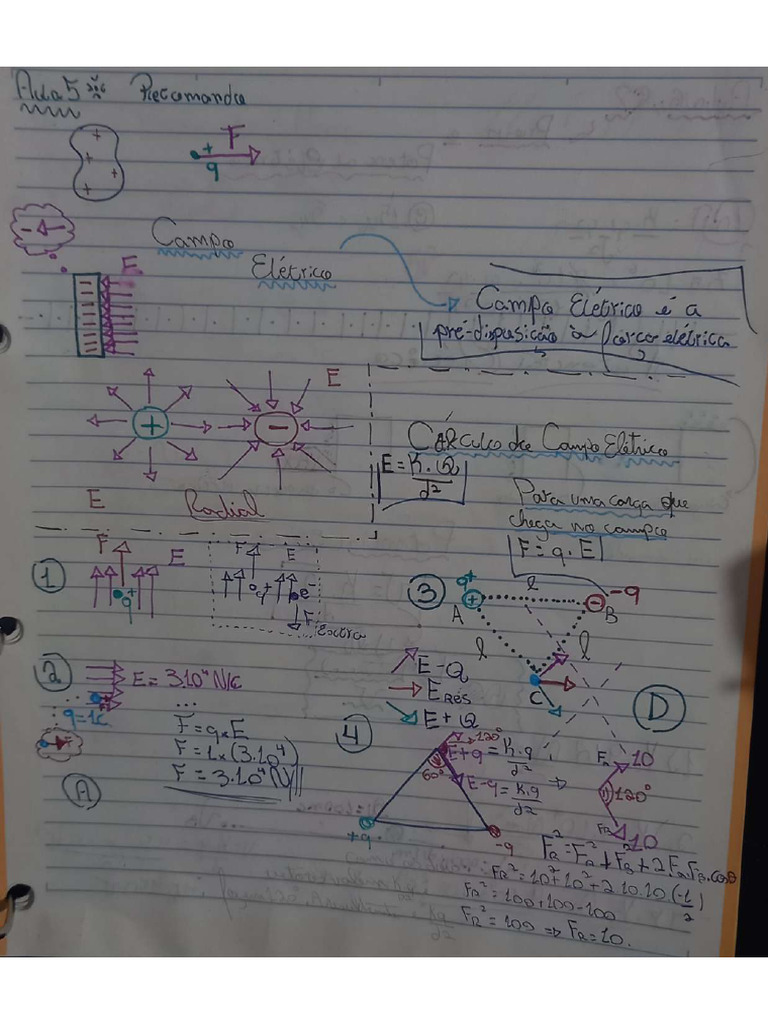 Aula 5 Recomanda
F
+
q
Campo
Elétrico
E
Campo Elétrico é a
pré-dispusição à força elétrica
E
+
-
E
Radial
Cálculo de Campo Elétrico
E = K.Q
d²
Para uma carga que
chega no campo
F = q.E
1
F
E
q+
F
E
q+
e-
F
2
E = 3.10⁴ N/c
F
q=1c
...
F = q x E
F = 1 x (3.10⁴)
F = 3.10⁴ N
A
3
q+
l
-q
A
B
l
l
C
E-Q
E RES
E+Q
D
4
120°
60°
E+q = K.q
d²
E-q = K.q
d²
+q
-q
Fa
10
120°
FB
10
FR² = Fa² + FB² + 2 Fa FB . cosθ
FR² = 10² + 10² + 2 10.10 (-1/2)
FR² = 100 + 100 - 100
FR² = 100 ⇒ FR = 10.